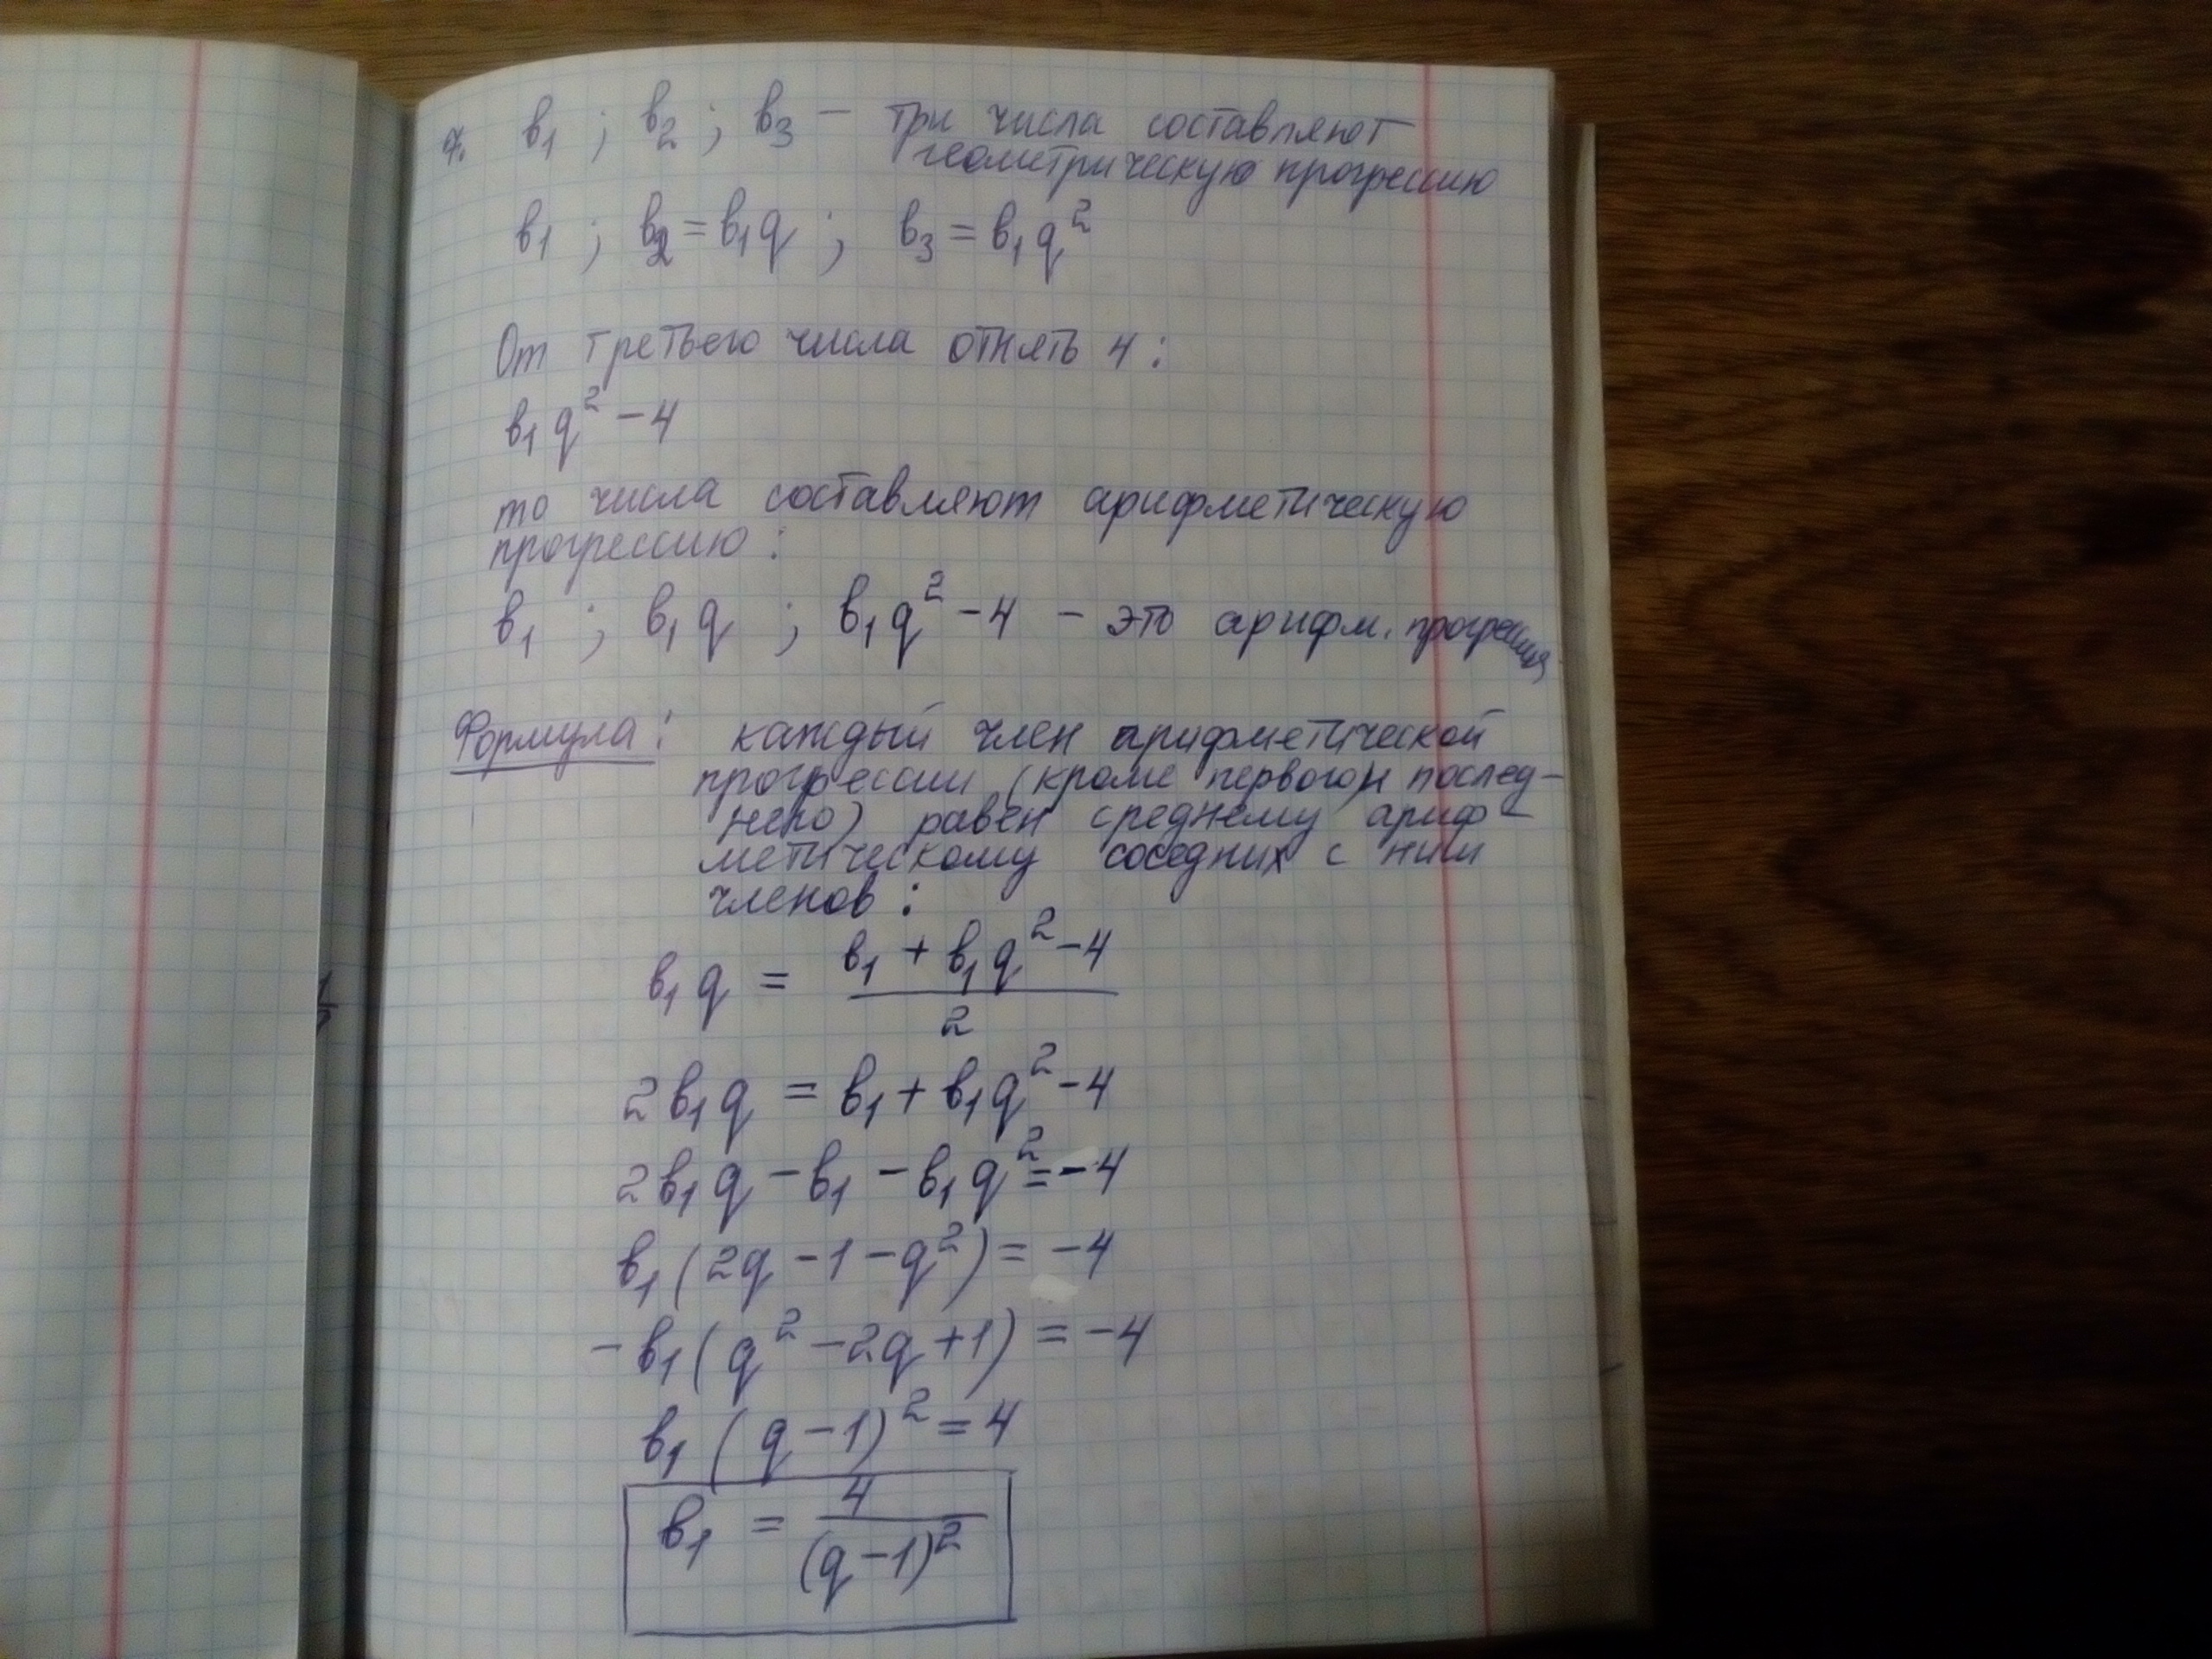 7. b₁ ; b₂ ; b₃ — три числа составляют
геометрическую прогрессию
b₁ ; b₂ = b₁q ; b₃ = b₁q²
От третьего числа отнять 4 :
b₁q² − 4
то числа составляют арифметическую
прогрессию :
b₁ ; b₁q ; b₁q² − 4 — это арифм. прогрессия
Формула : каждый член арифметической
прогрессии (кроме первого и послед-
него) равен среднему ариф-
метическому соседних с ним
членов :
b₁q = (b₁ + b₁q² − 4) / 2
2b₁q = b₁ + b₁q² − 4
2b₁q − b₁ − b₁q² = −4
b₁(2q − 1 − q²) = −4
−b₁(q² − 2q + 1) = −4
b₁(q − 1)² = 4
b₁ = 4 / (q − 1)²